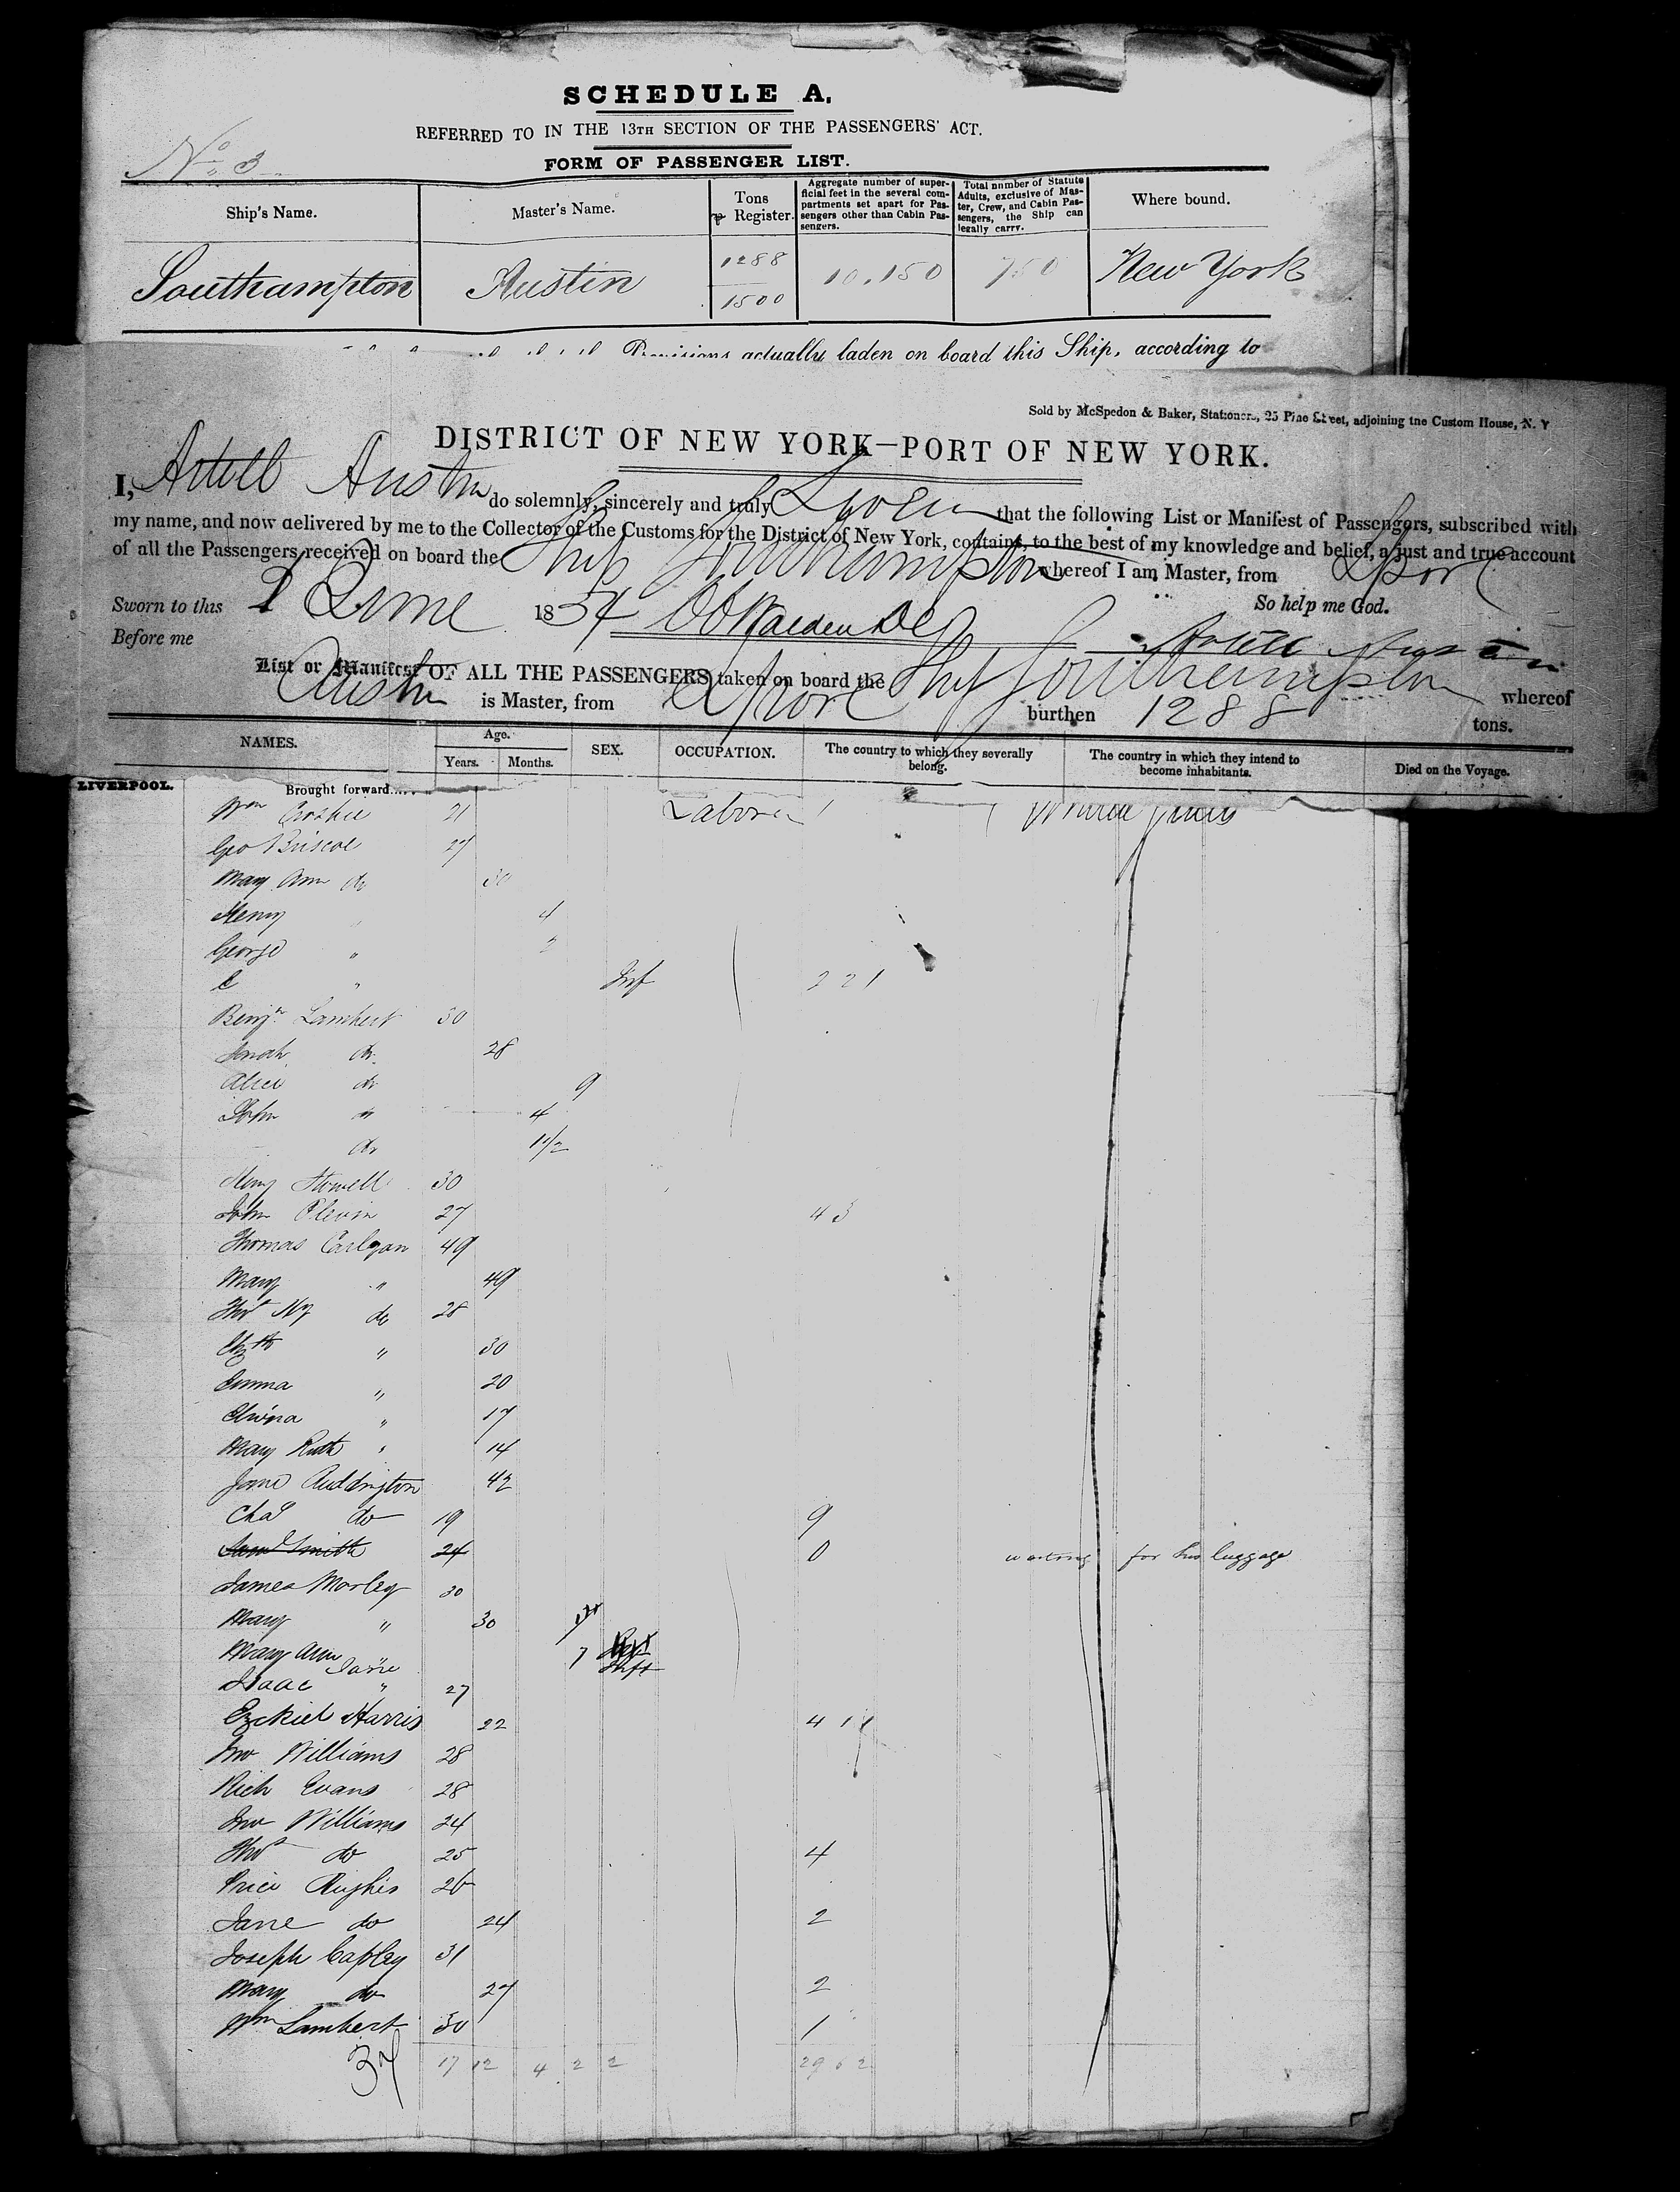 SCHEDULE A,
REFERRED TO IN THE 13TH SECTION OF THE PASSENGERS' ACT.
No. 3
FORM OF PASSENGER LIST.
Ship's Name. Master's Name. Tons Register. Aggregate number of superficial feet in the several compartments set apart for Passengers other than Cabin Passengers. Total number of Statute Adults, exclusive of Master, Crew, and Cabin Passengers, the Ship can legally carry. Where bound.
Southampton Austin 1288 1500 10,150 750 New York
Provisions actually laden on board this Ship, according to
Sold by McSpedon & Baker, Stationers, 25 Pine Street, adjoining the Custom House, N. Y
DISTRICT OF NEW YORK—PORT OF NEW YORK.
I, Austin do solemnly, sincerely and truly Swear that the following List or Manifest of Passengers, subscribed with
my name, and now delivered by me to the Collector of the Customs for the District of New York, contains, to the best of my knowledge and belief, a just and true account
of all the Passengers received on board the Ship Southampton whereof I am Master, from Lpool
Sworn to this 2 June 1854 So help me God.
Before me
List or Manifest OF ALL THE PASSENGERS taken on board the Ship Southampton whereof
Austin is Master, from Lpool burthen 1288 tons.
NAMES. Age. Years. Months. SEX. OCCUPATION. The country to which they severally belong. The country in which they intend to become inhabitants. Died on the Voyage.
LIVERPOOL. Brought forward....
Wm 21 Laborer United States
Geo Briscoe 27
Mary Ann do 30
Henry 4
George " 2
" Inf 2 2 1
Benjn Lambert 30
do 28
Alice do 9
John do 4
do 1 1/2
Howell 30
John Plevin 27 4 3
Thomas 49
Mary " 49
Thos do 28
Elizth " 30
Emma " 20
" 17
Mary Ruth " 14
Jane Ruddington 42
Chas do 19 9
Saml Smith 24 0 waiting for his luggage
James Morley 30
Mary " 30
Mary Ann 7
Jane
Isaac " 27
Ezekiel Harris 22 4 1 1
Jno Williams 28
Rich Evans 28
Jno Williams 24
Thos do 25 4
Price Hughes 26
Jane do 24 2
Joseph Capley 31
Mary do 27 2
Wm Lambert 30 1
37 17 12 4 2 2 29 6 2